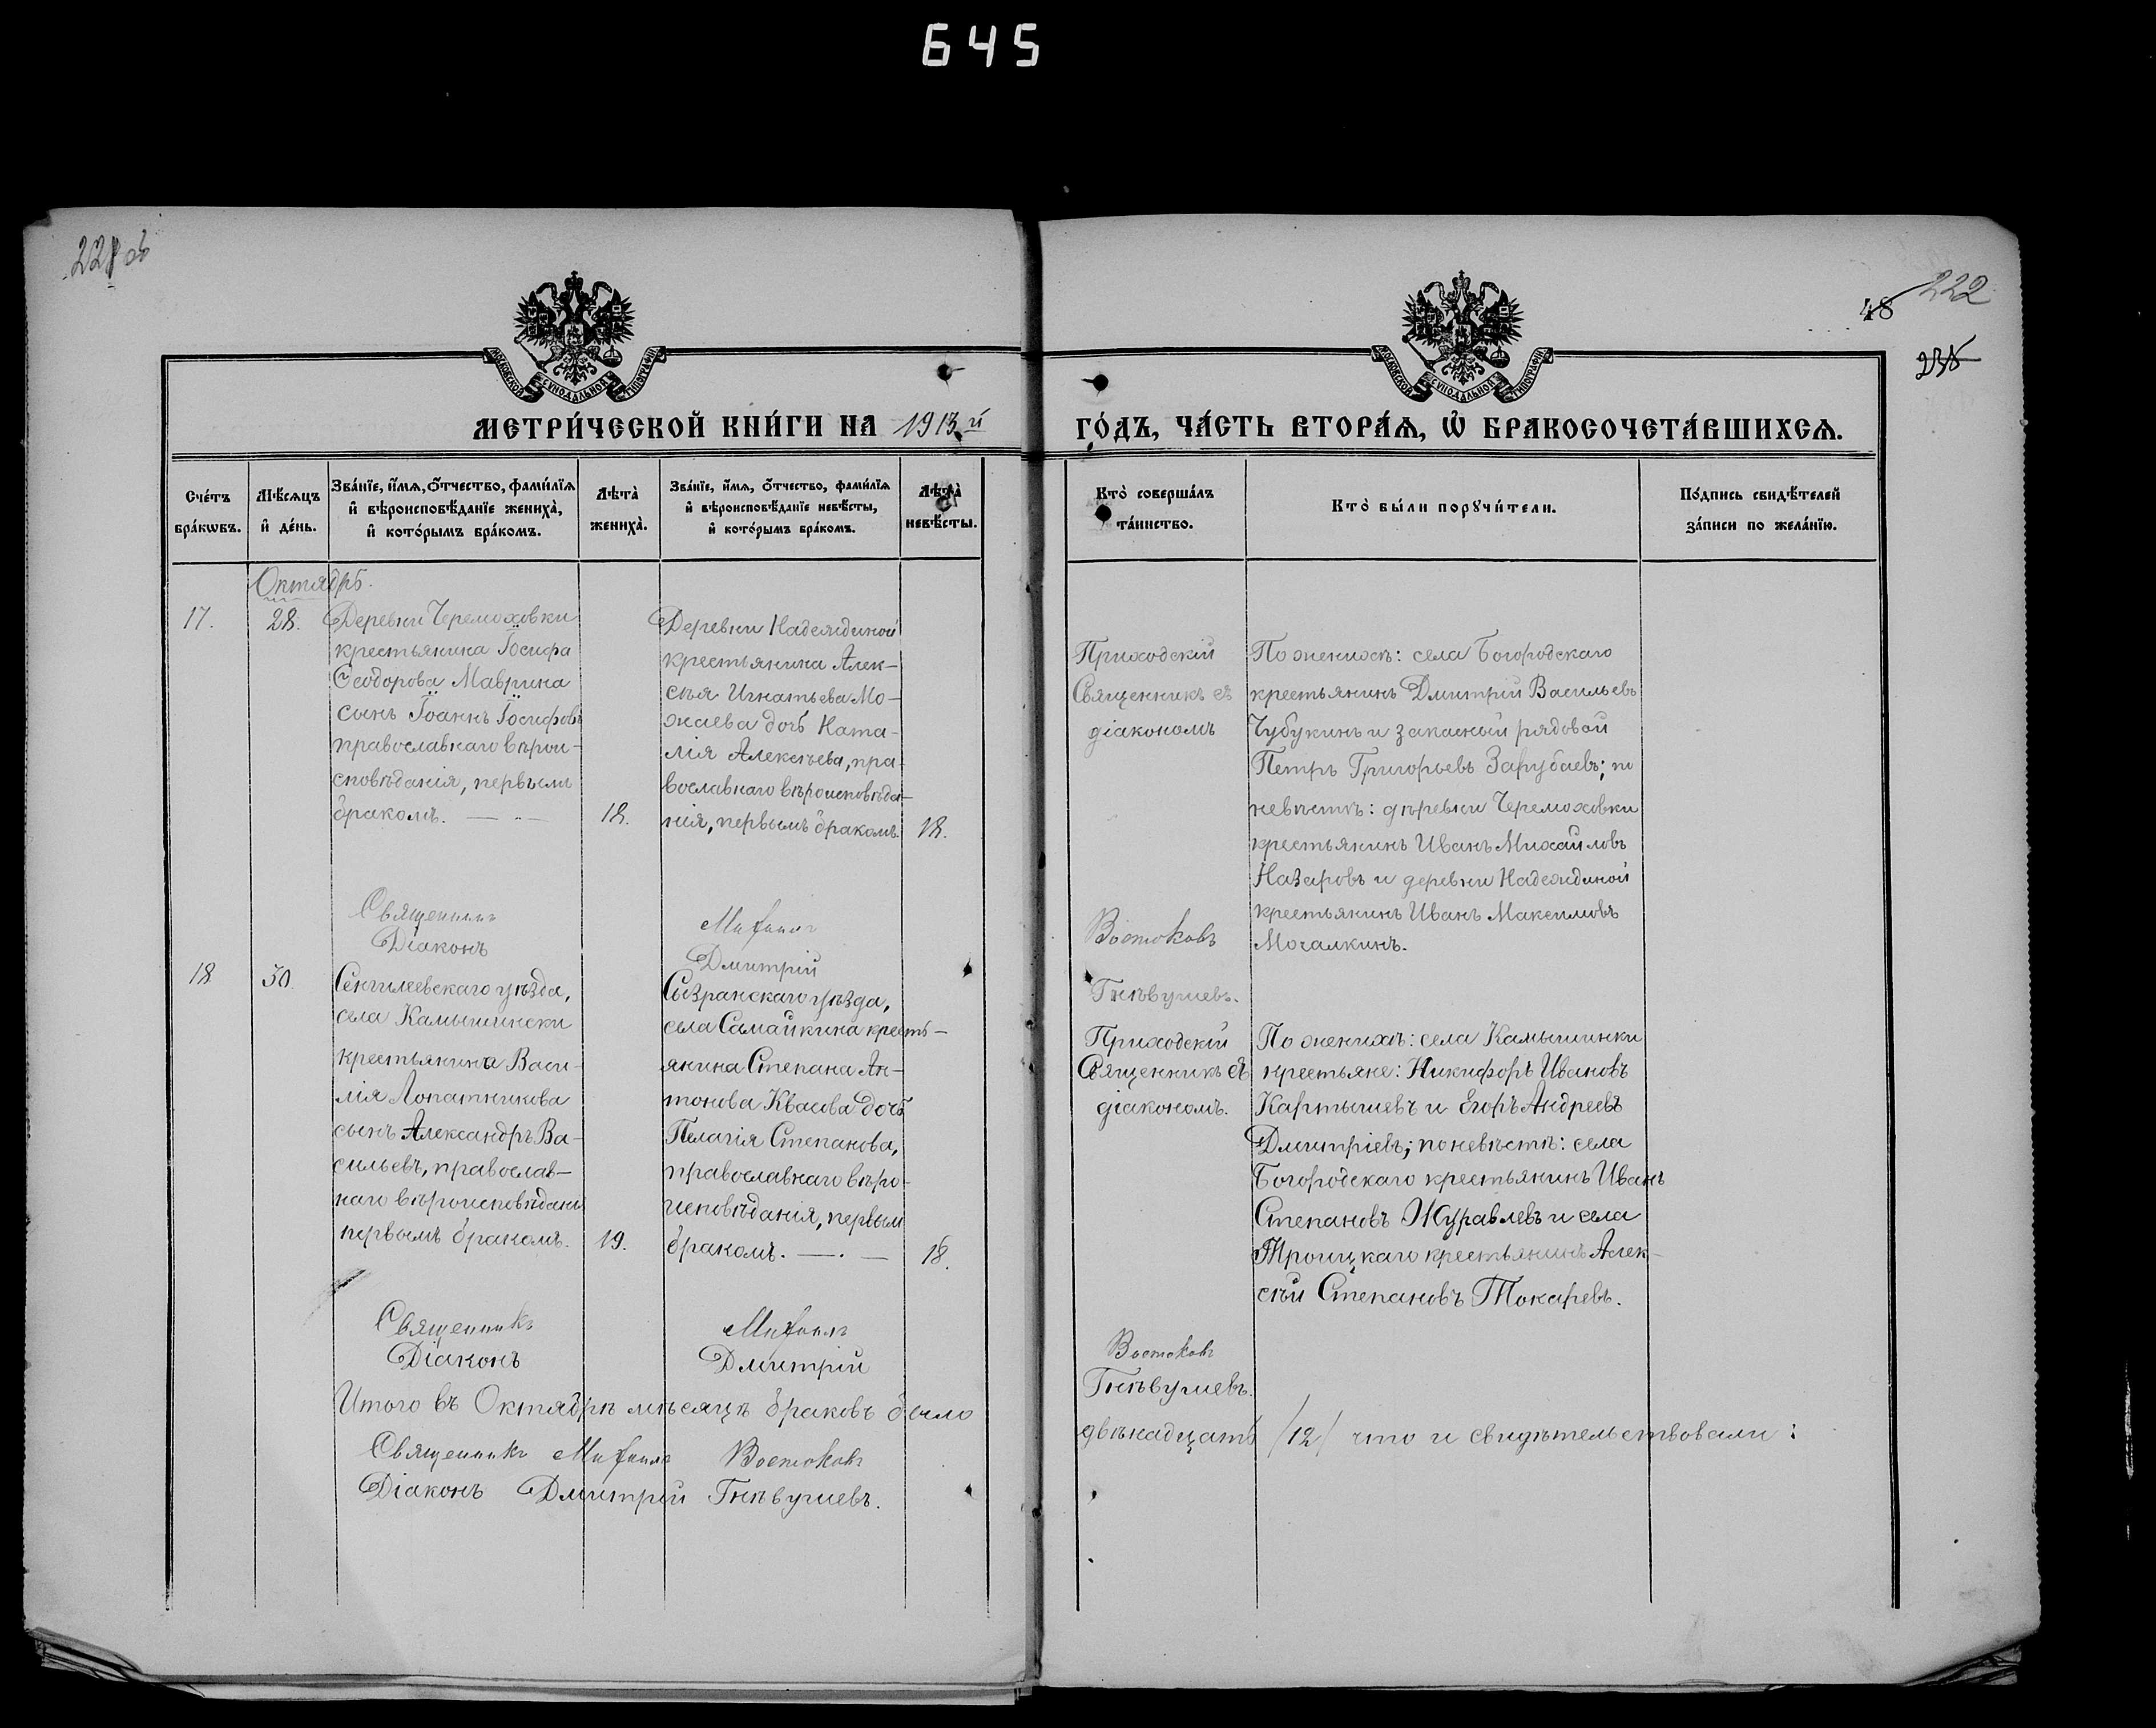 645
221 об
222
48
235
МОСКОВСКОЙ СѴНОДАЛЬНОЙ ТИПОГРАФІИ
МОСКОВСКОЙ СѴНОДАЛЬНОЙ ТИПОГРАФІИ
МЕТРИ́ЧЕСКОЙ КНИ́ГИ НА 1913й ГО́ДЪ, ЧА́СТЬ ВТОРА́Ѧ, Ѽ БРАКОСОЧЕТА́ВШИХСѦ.
Сче́тъ
бра́кѡвъ.
Мѣ́сѧцъ
и҆ де́нь.
Зва́нїе, и҆́мѧ, ѻ҆́тчество, фами́лїѧ
и҆ вѣроисповѣ́данїе жениха̀,
и҆ кото́рымъ бра́комъ.
Лѣта̀
жениха̀.
Зва́нїе, и҆́мѧ, ѻ҆́тчество, фами́лїѧ
и҆ вѣроисповѣ́данїе невѣ́сты,
и҆ кото́рымъ бра́комъ.
Лѣта̀
невѣ́сты.
Кто̀ соверша́лъ
та́инство.
Кто̀ бы́ли порꙋчи́тели.
По́дпись свидѣ́телей
за́писи по жела́нїю.
Октябрь.
17.
28.
Деревни Черемоховки
крестьянина Іосифа
Ѳеодорова Маврина
сынъ Іоаннъ Іосифовъ
православнаго вѣрои-
сповѣданія, первымъ
бракомъ. — „ —
18.
Деревни Надеждиной
крестьянина Алек-
сѣя Игнатьева Мо-
жаева дочь Ната-
лія Алексѣева, пра-
вославнаго вѣроисповѣда-
нія, первымъ бракомъ.
18.
Приходскій
Священникъ съ
діакономъ
По женихѣ: села Богородскаго
крестьянинъ Дмитрій Васильевъ
Чубукинъ и запасный рядовой
Петръ Григорьевъ Зарубаевъ; по
невѣстѣ: деревни Черемоховки
крестьянинъ Иванъ Михайловъ
Назаровъ и деревни Надеждиной
крестьянинъ Иванъ Максимовъ
Мочалкинъ.
Священникъ Михаилъ Востоковъ
Діаконъ Дмитрій Гнѣвушевъ.
18
30
Сенгилеевскаго уѣзда,
села Камышински
крестьянина Васи-
лія Лопатникова
сынъ Александръ Ва-
сильевъ, православ-
наго вѣроисповѣдані
первымъ бракомъ.
19.
Сызранскаго уѣзда,
села Самайкина кресть-
янина Степана Ан-
тонова Квасова дочь
Пелагія Степанова,
православнаго вѣро-
исповѣданія, первым
бракомъ. —. —
18.
Приходскій
Священникъ съ
діакономъ.
По женихѣ: села Камышинки
крестьяне: Никифоръ Ивановъ
Картышевъ и Егоръ Андреевъ
Дмитріевъ; по невѣстѣ: села
Богородскаго крестьянинъ Иванъ
Степановъ Журавлевъ и села
Троицкаго крестьянинъ Алек-
сѣй Степановъ Токаревъ.
Священникъ Михаилъ Востоковъ
Діаконъ Дмитрій Гнѣвушевъ.
Итого въ Октябрѣ мѣсяцѣ браковъ было двѣнадцать /12/ что и свидѣтельствовали:
Священникъ Михаилъ Востоковъ
Діаконъ Дмитрій Гнѣвушевъ.